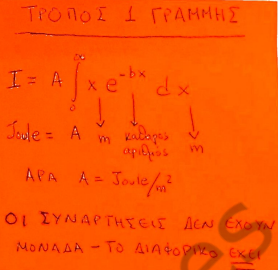 ΤΡΟΠΟΣ 1 ΓΡΑΜΜΗΣ
I = A ∫₀^∞ x e^{-bx} dx
Joule = A m καθαρός αριθμός m
ΑΡΑ A = Joule/m²
ΟΙ ΣΥΝΑΡΤΗΣΕΙΣ ΔΕΝ ΕΧΟΥΝ
ΜΟΝΑΔΑ - ΤΟ ΔΙΑΦΟΡΙΚΟ ΕΧΕΙ